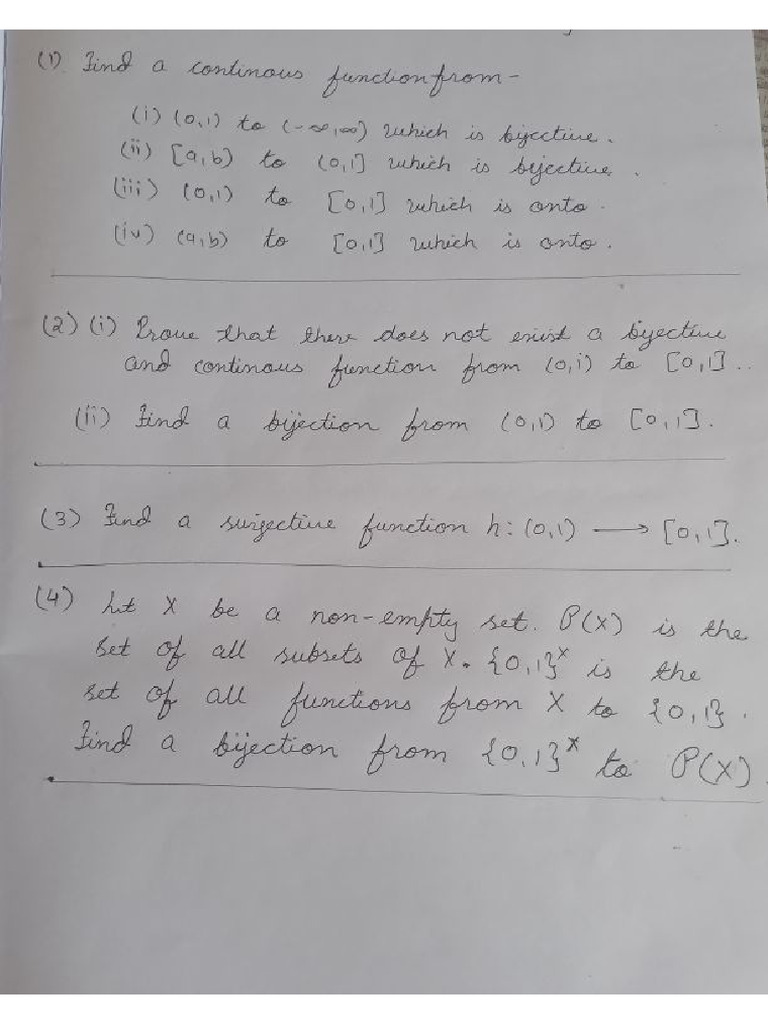 (1) Find a continous function from -
(i) (0,1) to (-∞,∞) which is bijective.
(ii) [a,b) to (0,1] which is bijective.
(iii) (0,1) to [0,1] which is onto.
(iv) (a,b) to [0,1] which is onto.
(2) (i) Prove that there does not exist a bijective
and continous function from (0,1) to [0,1]..
(ii) Find a bijection from (0,1) to [0,1].
(3) Find a surjective function h: (0,1) ⟶ [0,1].
(4) Let X be a non-empty set. P(X) is the
set of all subsets of X. {0,1}^X is the
set of all functions from X to {0,1}.
Find a bijection from {0,1}^X to P(X)